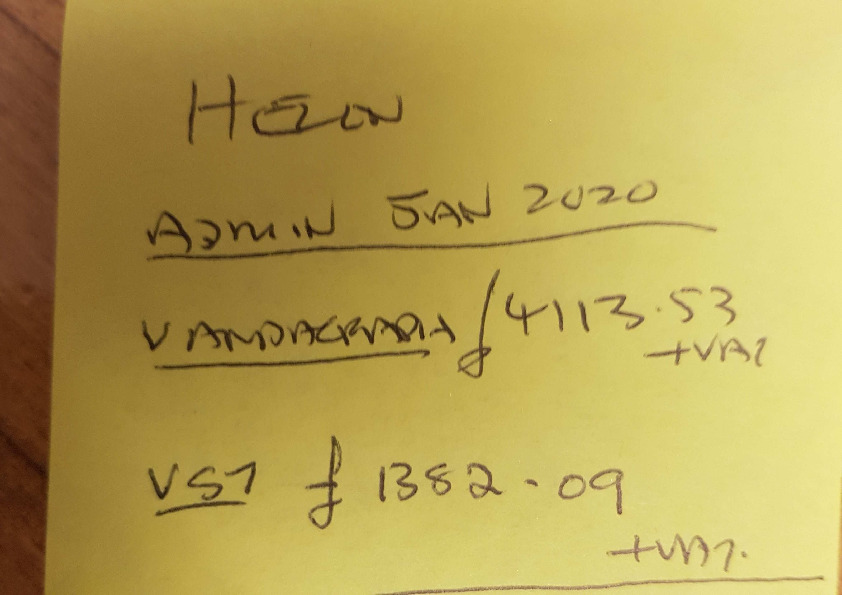 HELEN
ADMIN JAN 2020
VANDAGRAPH £4113.53
+VAT
VST £1382.09
+VAT.